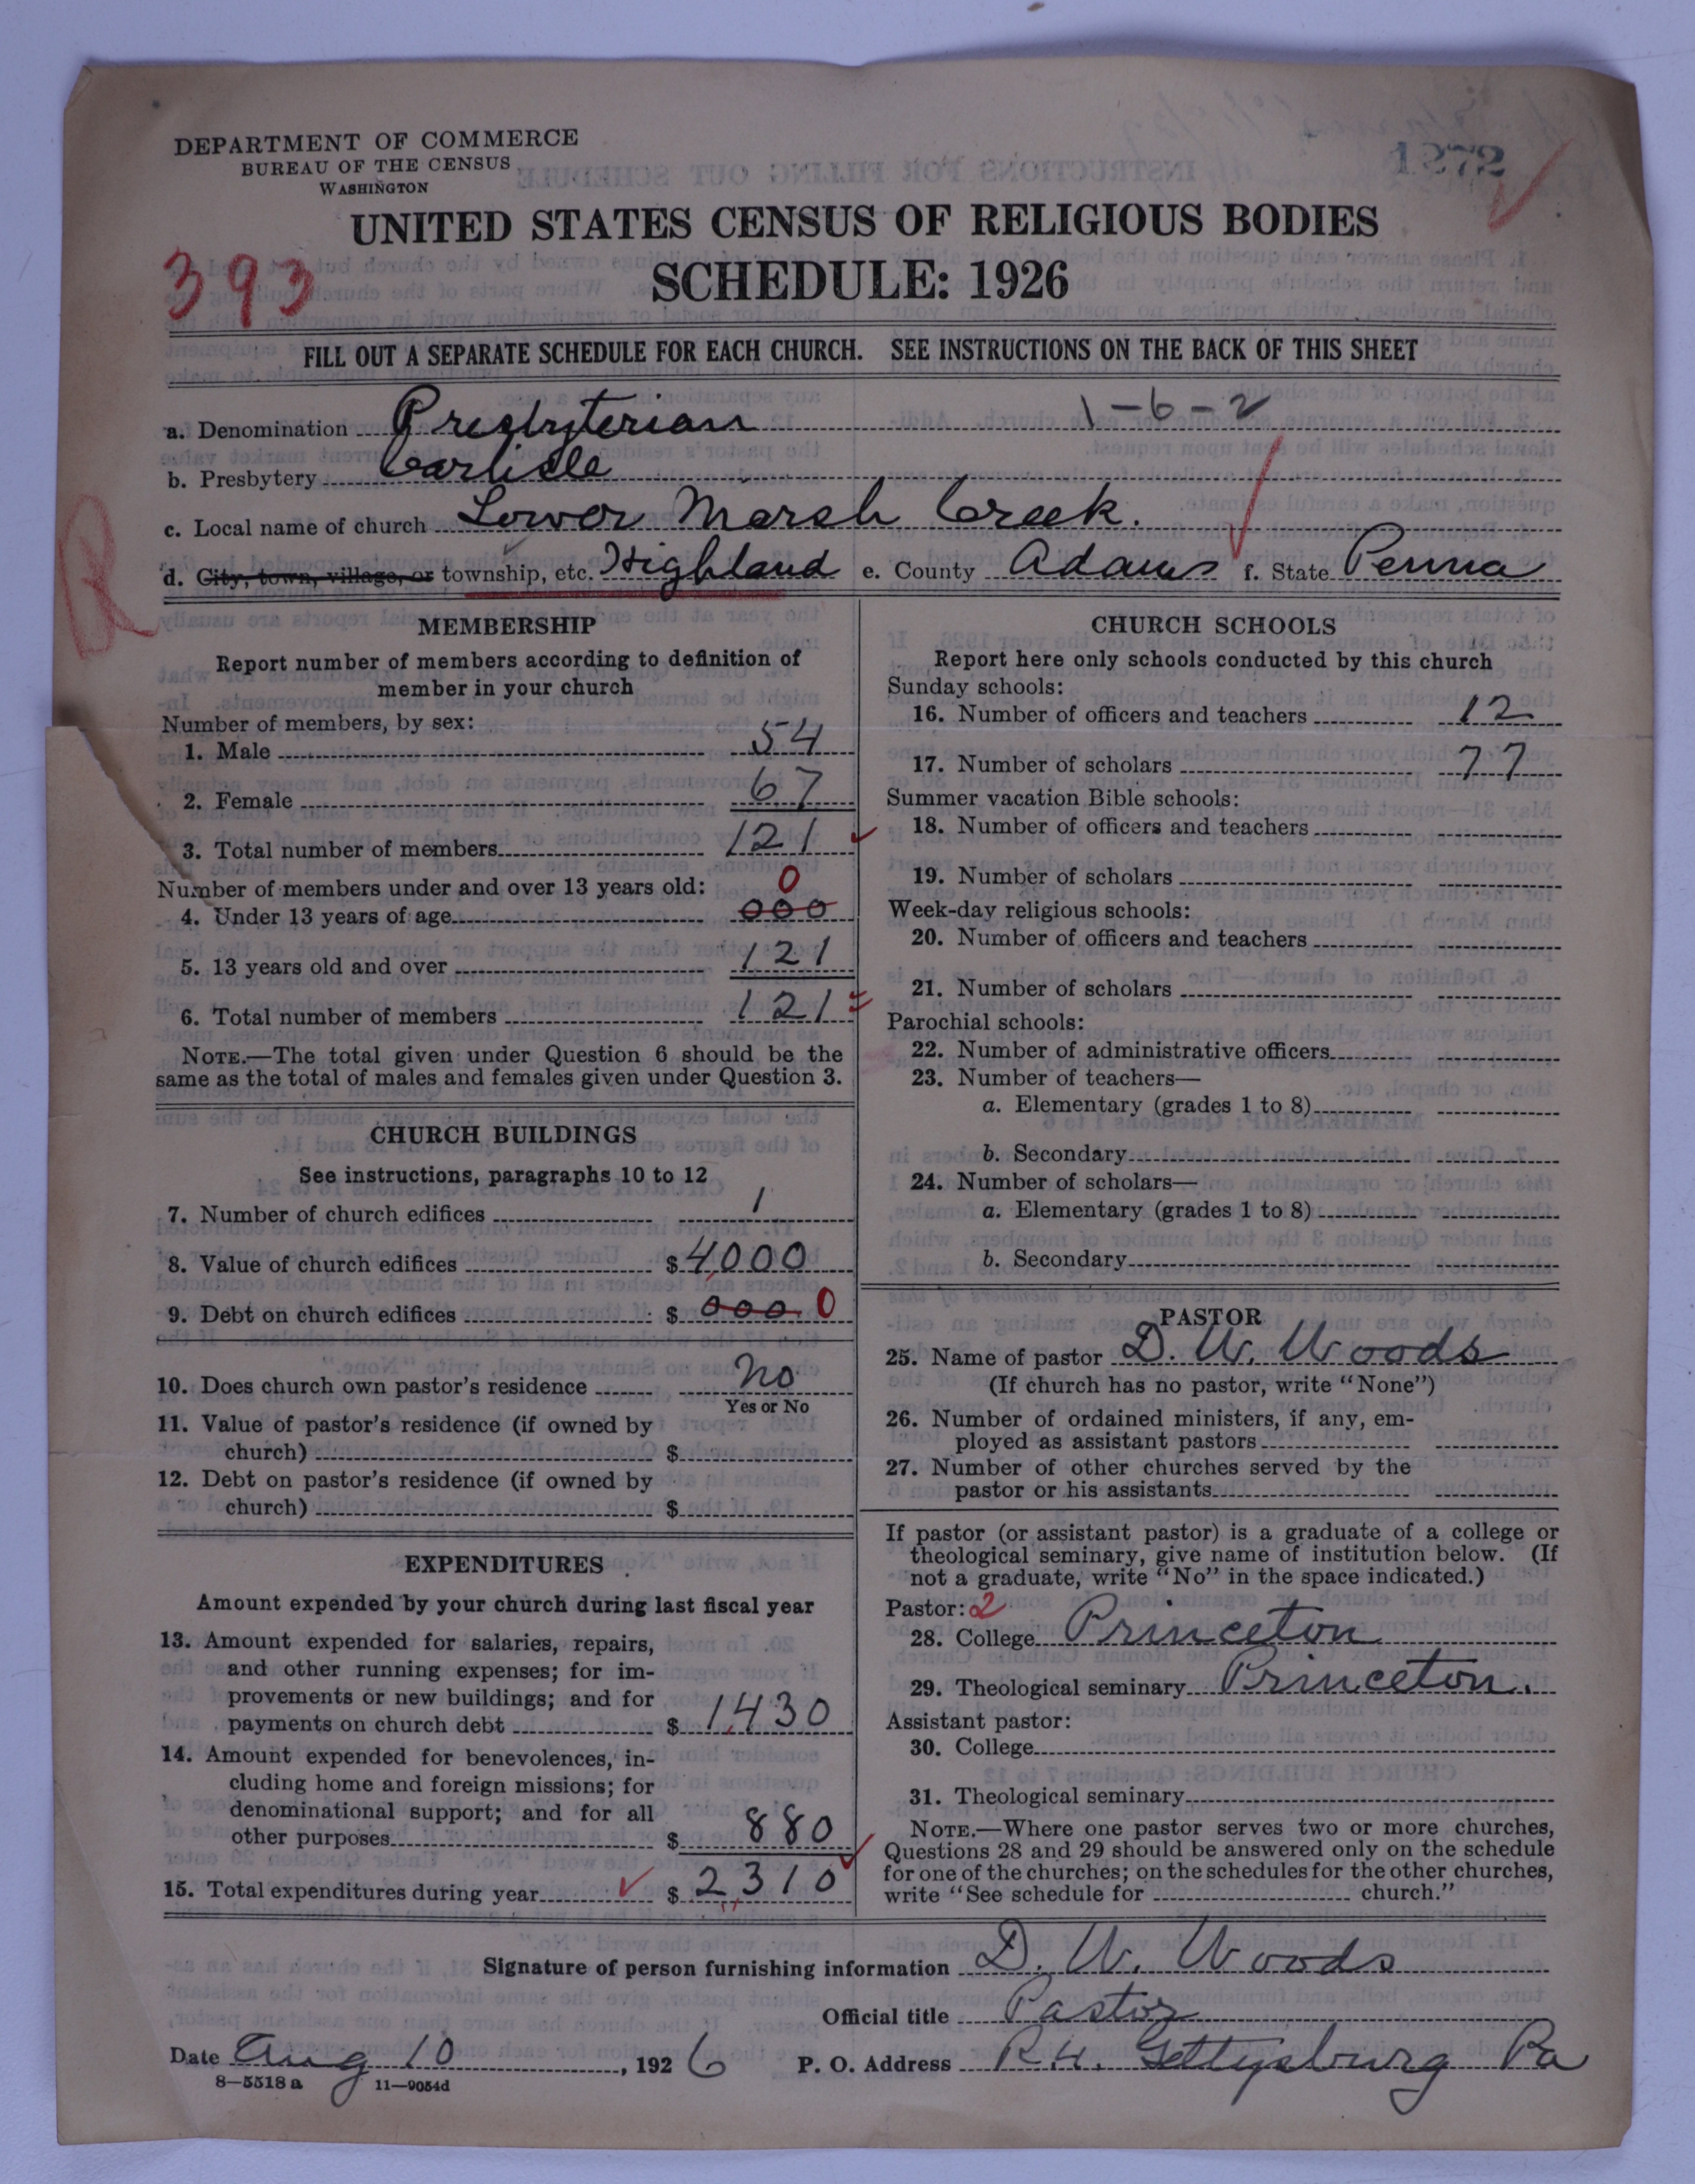 DEPARTMENT OF COMMERCE
BUREAU OF THE CENSUS
WASHINGTON
1272
UNITED STATES CENSUS OF RELIGIOUS BODIES
393
SCHEDULE: 1926
FILL OUT A SEPARATE SCHEDULE FOR EACH CHURCH. SEE INSTRUCTIONS ON THE BACK OF THIS SHEET
a. Denomination Presbyterian 1-6-2
b. Presbytery Carlisle
c. Local name of church Lower Marsh Creek.
d. City, town, village, or township, etc. Highland e. County Adams f. State Penna
R
MEMBERSHIP
Report number of members according to definition of
member in your church
Number of members, by sex:
1. Male 54
2. Female 67
3. Total number of members 121
Number of members under and over 13 years old: 0
4. Under 13 years of age 000
5. 13 years old and over 121
6. Total number of members 121
NOTE.—The total given under Question 6 should be the
same as the total of males and females given under Question 3.
CHURCH BUILDINGS
See instructions, paragraphs 10 to 12
7. Number of church edifices 1
8. Value of church edifices $ 4000
9. Debt on church edifices $ 000 0
10. Does church own pastor's residence no
Yes or No
11. Value of pastor's residence (if owned by
church) $
12. Debt on pastor's residence (if owned by
church) $
EXPENDITURES
Amount expended by your church during last fiscal year
13. Amount expended for salaries, repairs,
and other running expenses; for im-
provements or new buildings; and for
payments on church debt $ 1,430
14. Amount expended for benevolences, in-
cluding home and foreign missions; for
denominational support; and for all
other purposes $ 880
15. Total expenditures during year $ 2,310
CHURCH SCHOOLS
Report here only schools conducted by this church
Sunday schools:
16. Number of officers and teachers 12
17. Number of scholars 77
Summer vacation Bible schools:
18. Number of officers and teachers
19. Number of scholars
Week-day religious schools:
20. Number of officers and teachers
21. Number of scholars
Parochial schools:
22. Number of administrative officers
23. Number of teachers—
a. Elementary (grades 1 to 8)
b. Secondary
24. Number of scholars—
a. Elementary (grades 1 to 8)
b. Secondary
PASTOR
25. Name of pastor D. W. Woods
(If church has no pastor, write "None")
26. Number of ordained ministers, if any, em-
ployed as assistant pastors
27. Number of other churches served by the
pastor or his assistants
If pastor (or assistant pastor) is a graduate of a college or
theological seminary, give name of institution below. (If
not a graduate, write "No" in the space indicated.)
Pastor: 2
28. College Princeton
29. Theological seminary Princeton.
Assistant pastor:
30. College
31. Theological seminary
NOTE.—Where one pastor serves two or more churches,
Questions 28 and 29 should be answered only on the schedule
for one of the churches; on the schedules for the other churches,
write "See schedule for church."
Signature of person furnishing information D. W. Woods
Official title Pastor
Date Aug 10, 1926 P. O. Address R.4. Gettysburg Pa
8—5518 a 11—9054d